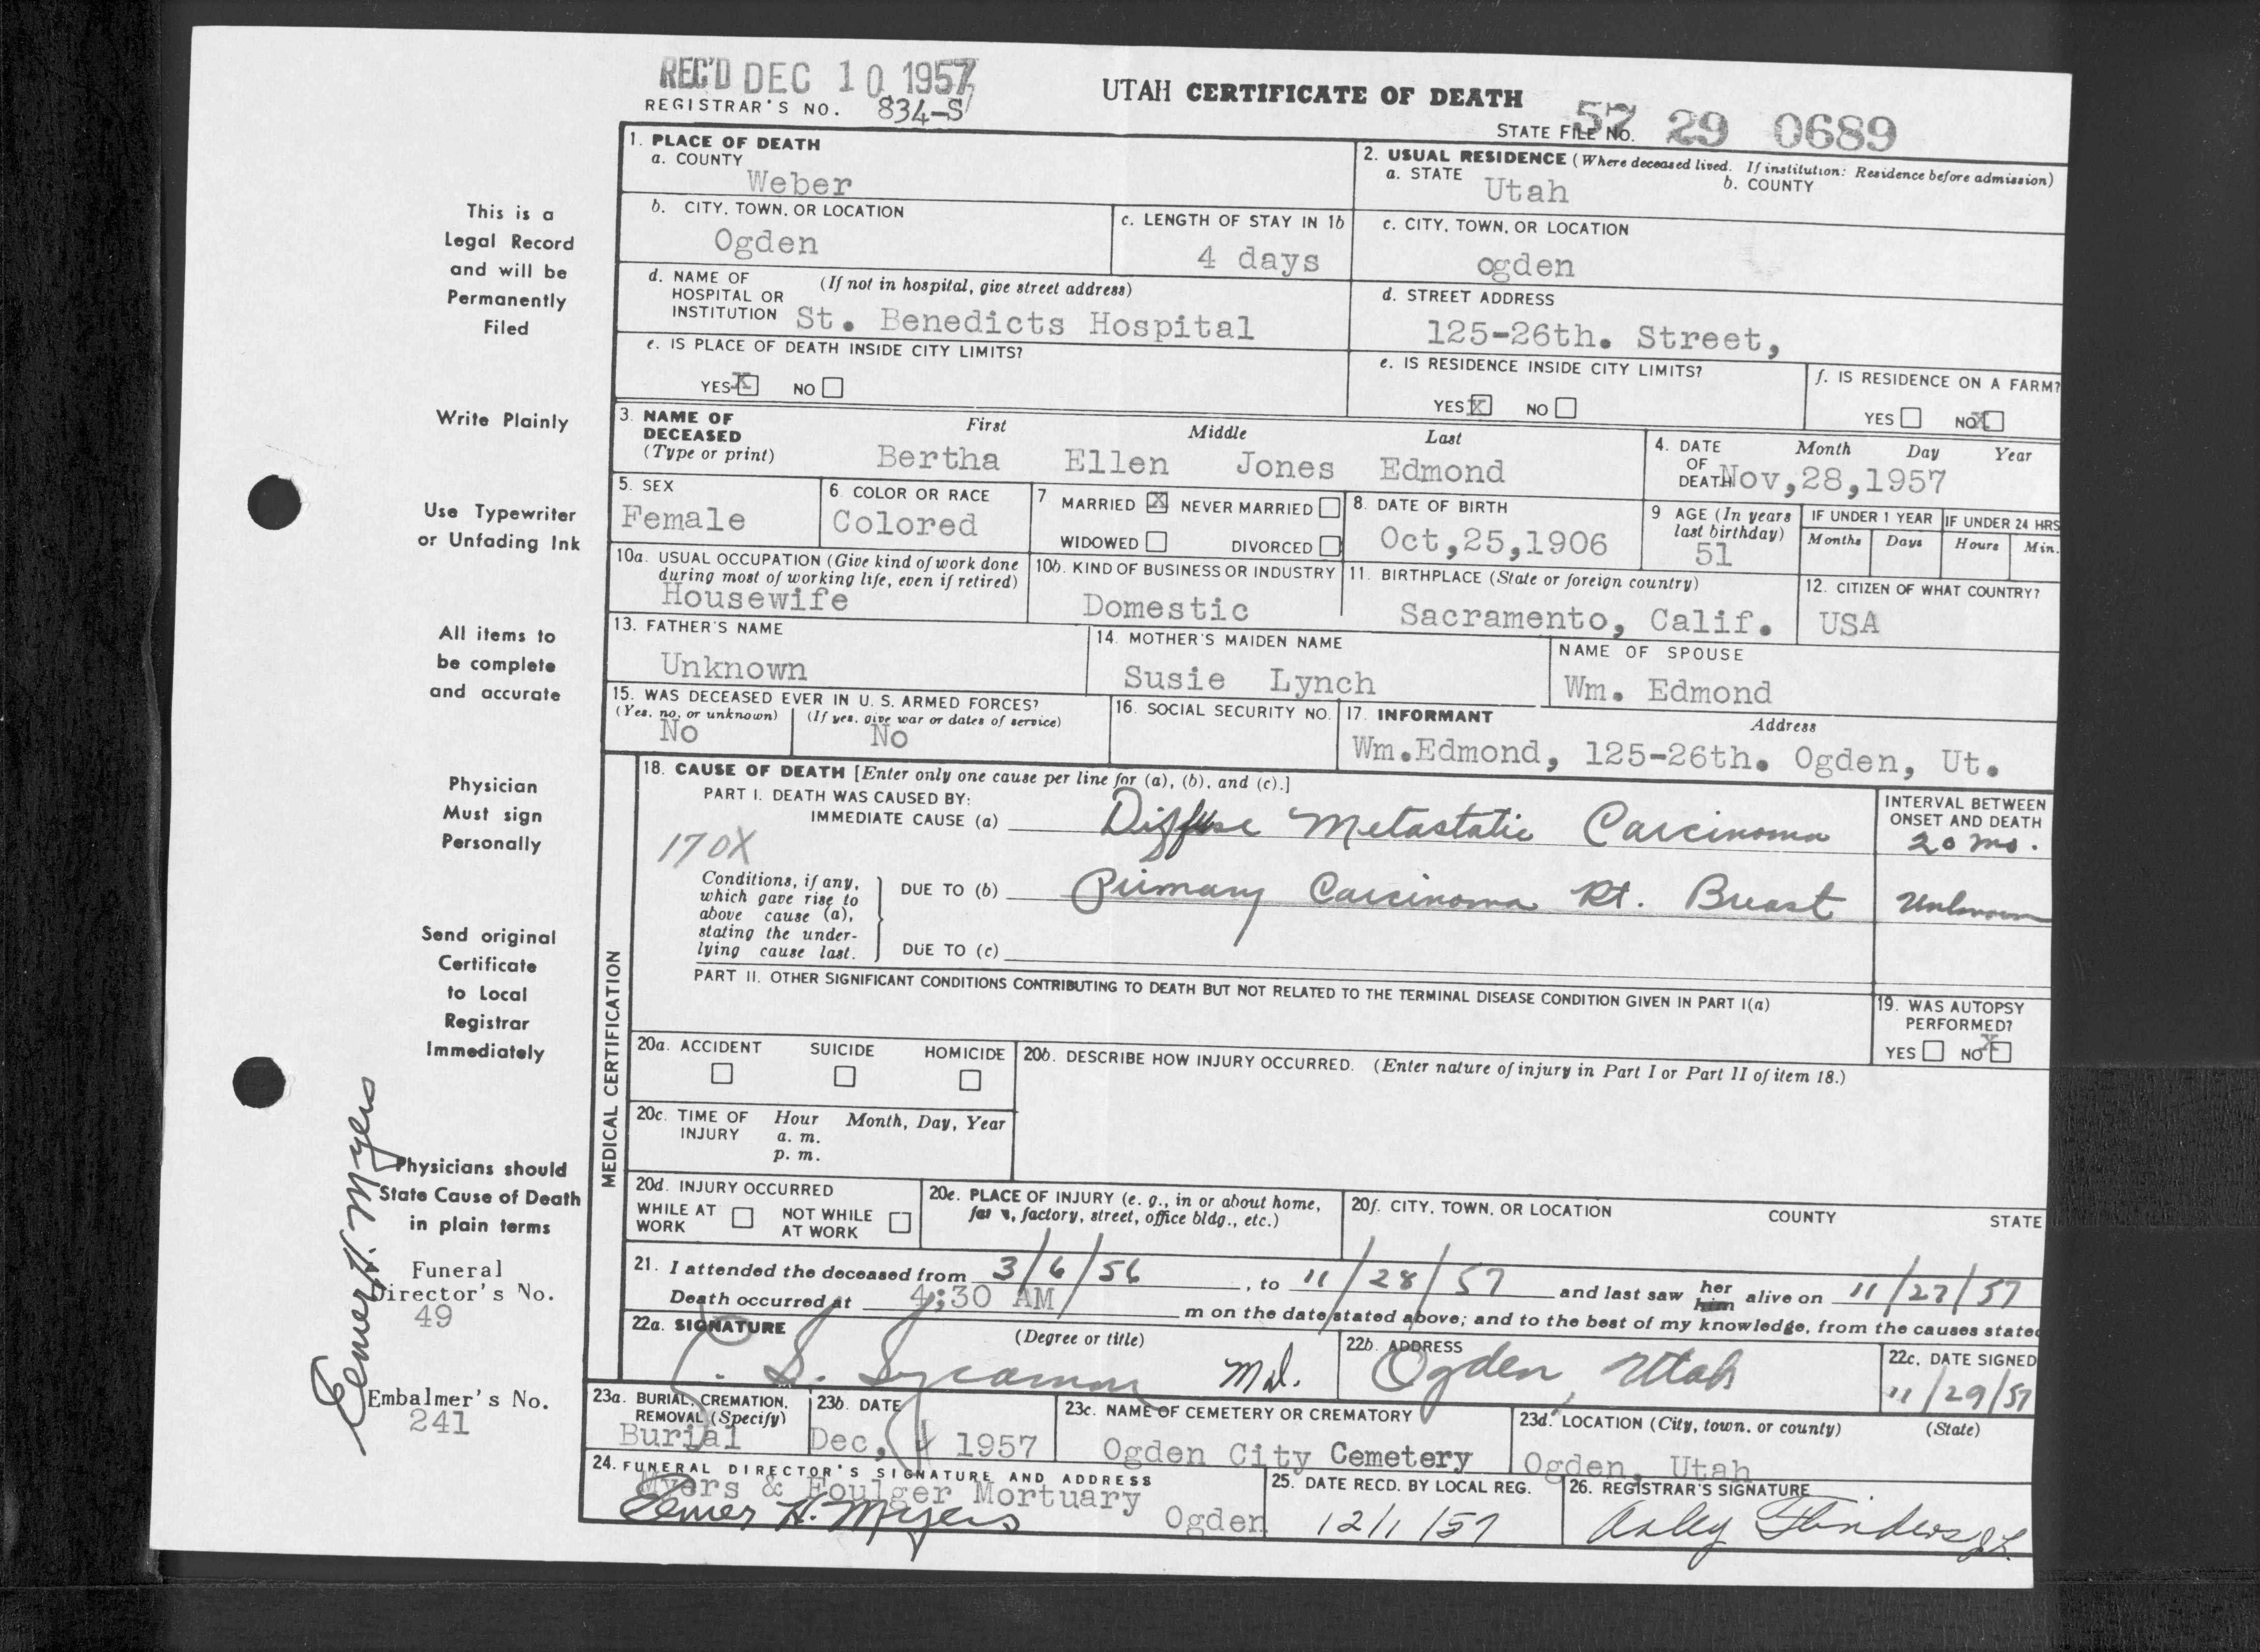 REC'D DEC 10 1957
REGISTRAR'S NO. 834-S
UTAH CERTIFICATE OF DEATH
STATE FILE NO. 57 29 0689
This is a
Legal Record
and will be
Permanently
Filed
Write Plainly
Use Typewriter
or Unfading Ink
All items to
be complete
and accurate
Physician
Must sign
Personally
Send original
Certificate
to Local
Registrar
Immediately
Physicians should
State Cause of Death
in plain terms
Funeral
Director's No.
49
Embalmer's No.
241
Elmer H. Myers
1. PLACE OF DEATH
a. COUNTY
Weber
2. USUAL RESIDENCE (Where deceased lived. If institution: Residence before admission)
a. STATE Utah b. COUNTY
b. CITY, TOWN, OR LOCATION
Ogden
c. LENGTH OF STAY IN 1b
4 days
c. CITY, TOWN, OR LOCATION
ogden
d. NAME OF (If not in hospital, give street address)
HOSPITAL OR
INSTITUTION St. Benedicts Hospital
d. STREET ADDRESS
125-26th. Street,
e. IS PLACE OF DEATH INSIDE CITY LIMITS?
YES X NO
e. IS RESIDENCE INSIDE CITY LIMITS?
YES X NO
f. IS RESIDENCE ON A FARM?
YES NO X
3. NAME OF
DECEASED
(Type or print)
First Middle Last
Bertha Ellen Jones Edmond
4. DATE Month Day Year
OF
DEATH Nov,28,1957
5. SEX
Female
6. COLOR OR RACE
Colored
7 MARRIED X NEVER MARRIED
WIDOWED DIVORCED
8. DATE OF BIRTH
Oct,25,1906
9 AGE (In years
last birthday)
51
IF UNDER 1 YEAR
Months Days
IF UNDER 24 HRS
Hours Min.
10a. USUAL OCCUPATION (Give kind of work done
during most of working life, even if retired)
Housewife
10b. KIND OF BUSINESS OR INDUSTRY
Domestic
11. BIRTHPLACE (State or foreign country)
Sacramento, Calif.
12. CITIZEN OF WHAT COUNTRY?
USA
13. FATHER'S NAME
Unknown
14. MOTHER'S MAIDEN NAME
Susie Lynch
NAME OF SPOUSE
Wm. Edmond
15. WAS DECEASED EVER IN U. S. ARMED FORCES?
(Yes, no, or unknown) (If yes, give war or dates of service)
No No
16. SOCIAL SECURITY NO.
17. INFORMANT Address
Wm.Edmond, 125-26th. Ogden, Ut.
MEDICAL CERTIFICATION
18. CAUSE OF DEATH [Enter only one cause per line for (a), (b), and (c).]
PART I. DEATH WAS CAUSED BY:
IMMEDIATE CAUSE (a) Diffuse Metastatic Carcinoma
INTERVAL BETWEEN
ONSET AND DEATH
20 mo.
170X
Conditions, if any,
which gave rise to
above cause (a),
stating the under-
lying cause last.
DUE TO (b) Primary Carcinoma Rt. Breast Unknown
DUE TO (c)
PART II. OTHER SIGNIFICANT CONDITIONS CONTRIBUTING TO DEATH BUT NOT RELATED TO THE TERMINAL DISEASE CONDITION GIVEN IN PART I(a)
19. WAS AUTOPSY
PERFORMED?
YES NO X
20a. ACCIDENT SUICIDE HOMICIDE
20b. DESCRIBE HOW INJURY OCCURRED. (Enter nature of injury in Part I or Part II of item 18.)
20c. TIME OF Hour Month, Day, Year
INJURY a. m.
p. m.
20d. INJURY OCCURRED
WHILE AT
WORK
NOT WHILE
AT WORK
20e. PLACE OF INJURY (e. g., in or about home,
farm, factory, street, office bldg., etc.)
20f. CITY, TOWN, OR LOCATION COUNTY STATE
21. I attended the deceased from 3/6/56, to 11/28/57 and last saw her him alive on 11/27/57
Death occurred at 4;30 AM m on the date stated above; and to the best of my knowledge, from the causes stated
22a. SIGNATURE (Degree or title)
S. Sycamore Md.
22b. ADDRESS
Ogden, Utah
22c. DATE SIGNED
11/29/57
23a. BURIAL, CREMATION,
REMOVAL (Specify)
Burial
23b. DATE
Dec, 1957
23c. NAME OF CEMETERY OR CREMATORY
Ogden City Cemetery
23d. LOCATION (City, town, or county) (State)
Ogden, Utah
24. FUNERAL DIRECTOR'S SIGNATURE AND ADDRESS
Myers & Foulger Mortuary
Elmer H. Myers Ogden
25. DATE RECD. BY LOCAL REG.
12/1/57
26. REGISTRAR'S SIGNATURE
Flinders